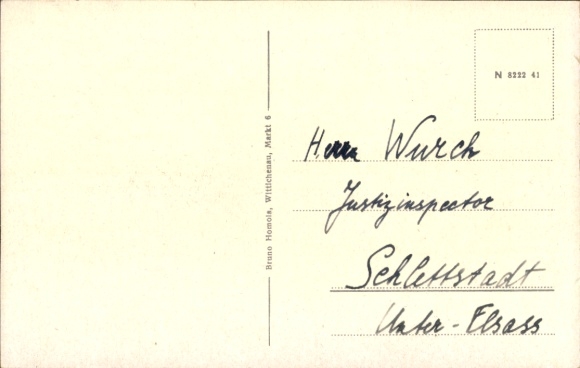 N 8222 41
Bruno Homola, Wittichenau, Markt 6
Herrn Wurch
Justizinspector
Schlettstadt
Unter-Elsass